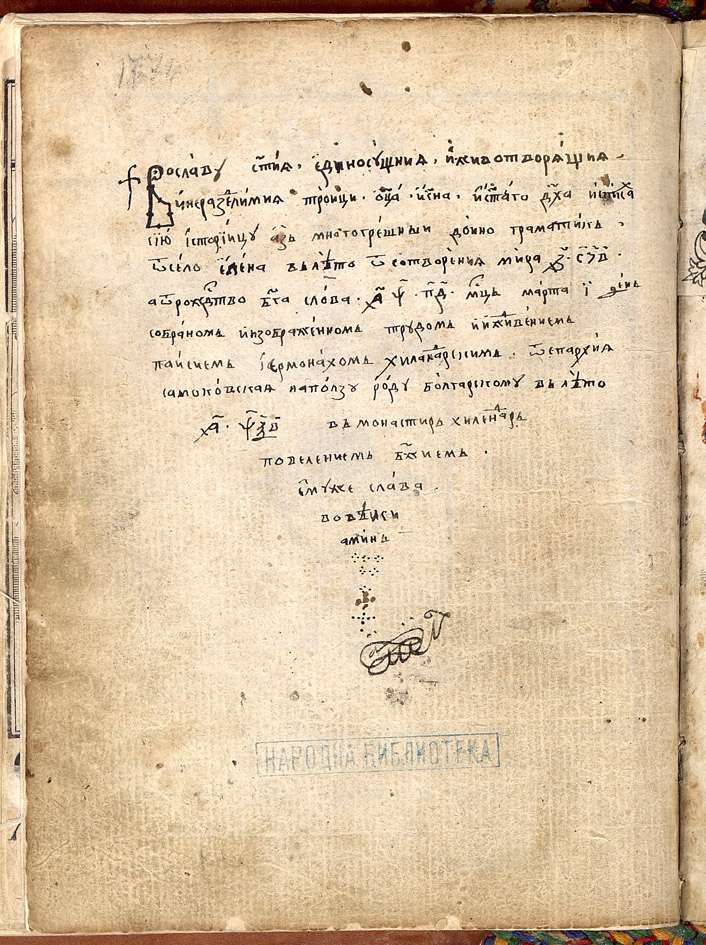 Во славу с҃тиѧ, єдиносущниѧ, и живо творѧщиѧ
и неразделимиѧ троици, ѡ҃ца и с҃на, и с҃таго д҃ха
сїю їсторїицу азъ многогрешныи доино граматикъ
ѿ село елена въ лѣто ѿ сотворениѧ мира ҂з҃.с҃ч҃в҃.
а ѿ рождство б҃га слова. ҂а҃ ѱ҃.п҃д҃. м҃ца марта ї денъ
собраномъ и изображенномъ трудомъ и иждивениемъ
паисиемъ їєрмонахомъ хиландарскимъ. ѿ єпархиѧ
самоковскаѧ на ползу роду болгарскому въ лѣто
҂а҃.ѱ҃ѯ҃в҃ въ монастиръ хиленъдаръ
повелениемъ б҃жиемъ.
ємуже слава.
во вѣки
аминъ
НАРОДНА БИБЛИОТЕКА